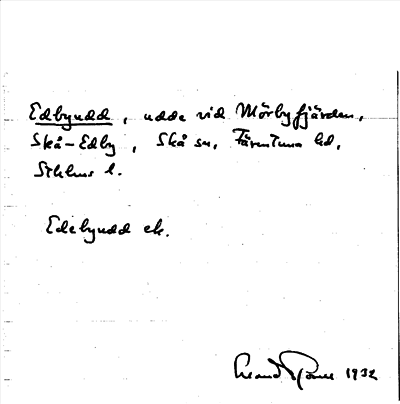 Edbyudd, udde vid Mörbyfjärden,
Skå-Edby, Skå sn, Färentuna hd,
Sthlms l.
Edebyudd ek.
1932